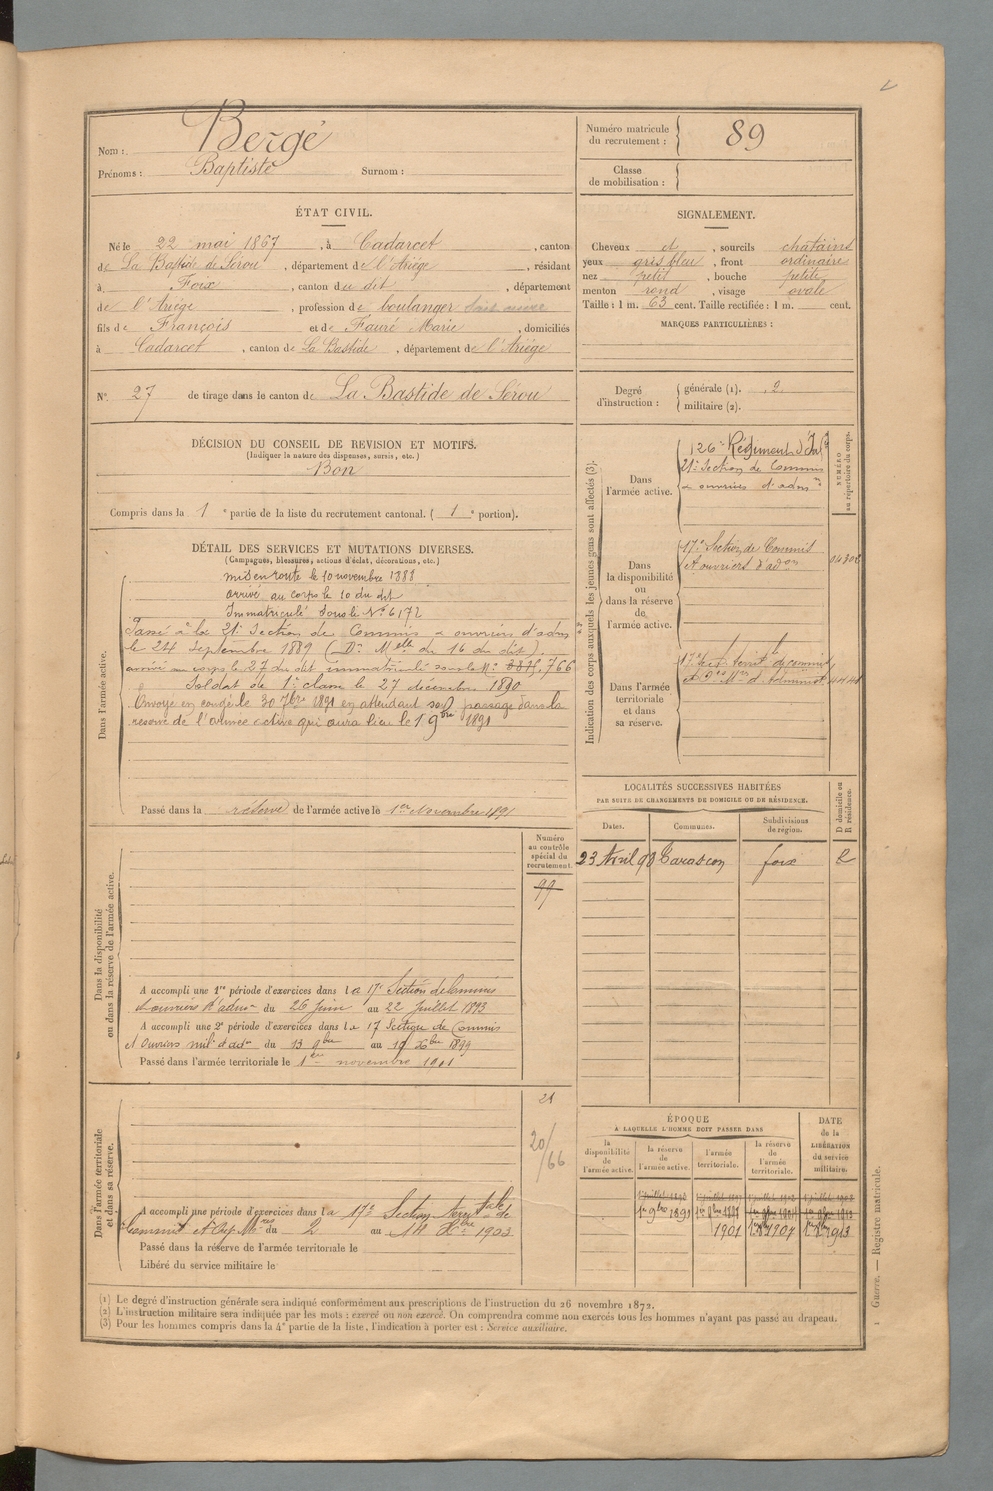 Nom : Bergé
Prénoms : Baptiste Surnom :
Numéro matricule du recrutement : 89
Classe de mobilisation :
ÉTAT CIVIL.
Né le 22 mai 1867, à Cadarcet, canton
de La Bastide de Sérou, département de l'Ariège, résidant
à Foix, canton du dit, département
de l'Ariège, profession de boulanger
fils de François et de Fauré Marie, domiciliés
à Cadarcet, canton de La Bastide, département de l'Ariège
N° 27 de tirage dans le canton de La Bastide de Sérou
SIGNALEMENT.
Cheveux et, sourcils chatains
yeux gris bleu, front ordinaire
nez petit, bouche petite
menton rond, visage ovale
Taille : 1 m. 63 cent. Taille rectifiée : 1 m. cent.
MARQUES PARTICULIÈRES :
Degré d'instruction : générale (1). 2
militaire (2).
DÉCISION DU CONSEIL DE REVISION ET MOTIFS.
(Indiquer la nature des dispenses, sursis, etc.)
Bon
Compris dans la 1e partie de la liste du recrutement cantonal. (1e portion).
DÉTAIL DES SERVICES ET MUTATIONS DIVERSES.
(Campagnes, blessures, actions d'éclat, décorations, etc.)
Dans l'armée active.
mis en route le 10 novembre 1888
arrivé au corps le 10 du dit
Immatriculé sous le N° 6172
Passé à la 21e Section de Commis & ouvriers d'adm
le 24 Septembre 1889 (Dn Melle du 16 du dit)
arrivé au corps le 27 du dit immatriculé sous le N° 766
Soldat de 1e classe le 27 décembre 1890
Envoyé en congé le 30 7bre 1891 en attendant son passage dans la
réserve de l'armée active qui aura lieu le 1 9bre 1891
Passé dans la réserve de l'armée active le 1er Novembre 1891
Indication des corps auxquels les jeunes gens sont affectés (3).
NUMÉRO au répertoire du corps.
Dans l'armée active.
126e Régiment d'Inf
21e Section de Commis
& ouvriers d'adm
Dans la disponibilité ou dans la réserve de l'armée active.
17e Section de Commis
et ouvriers d'adon
Dans l'armée territoriale et dans sa réserve.
LOCALITÉS SUCCESSIVES HABITÉES
PAR SUITE DE CHANGEMENTS DE DOMICILE OU DE RÉSIDENCE.
D domicile ou R résidence.
Dates. Communes. Subdivisions de région.
23 Avril 98 Tarascon foix R
Dans la disponibilité ou dans la réserve de l'armée active.
Numéro au contrôle spécial du recrutement.
99
A accompli une 1re période d'exercices dans la 17e Section de Commis
et ouvriers d'adm du 26 Juin au 22 Juillet 1893
A accompli une 2e période d'exercices dans la 17 Section de Commis
et Ouvriers mil. d'adm du 13 9bre au 10 Xbre 1899
Passé dans l'armée territoriale le 1er novembre 1901
Dans l'armée territoriale et dans sa réserve.
21
20/66
A accompli une période d'exercices dans la 17e Section territale de
Commis et Ouv. Mres du 2 au 14 Xbre 1903
Passé dans la réserve de l'armée territoriale le
Libéré du service militaire le
ÉPOQUE
À LAQUELLE L'HOMME DOIT PASSER DANS
la disponibilité de l'armée active.
la réserve de l'armée active.
l'armée territoriale.
la réserve de l'armée territoriale.
DATE de la LIBÉRATION du service militaire.
1er 9bre 1891
1901
(1) Le degré d'instruction générale sera indiqué conformément aux prescriptions de l'instruction du 26 novembre 1872.
(2) L'instruction militaire sera indiquée par les mots : exercé ou non exercé. On comprendra comme non exercés tous les hommes n'ayant pas passé au drapeau.
(3) Pour les hommes compris dans la 4e partie de la liste, l'indication à porter est : Service auxiliaire.
Guerre. — Registre matricule.